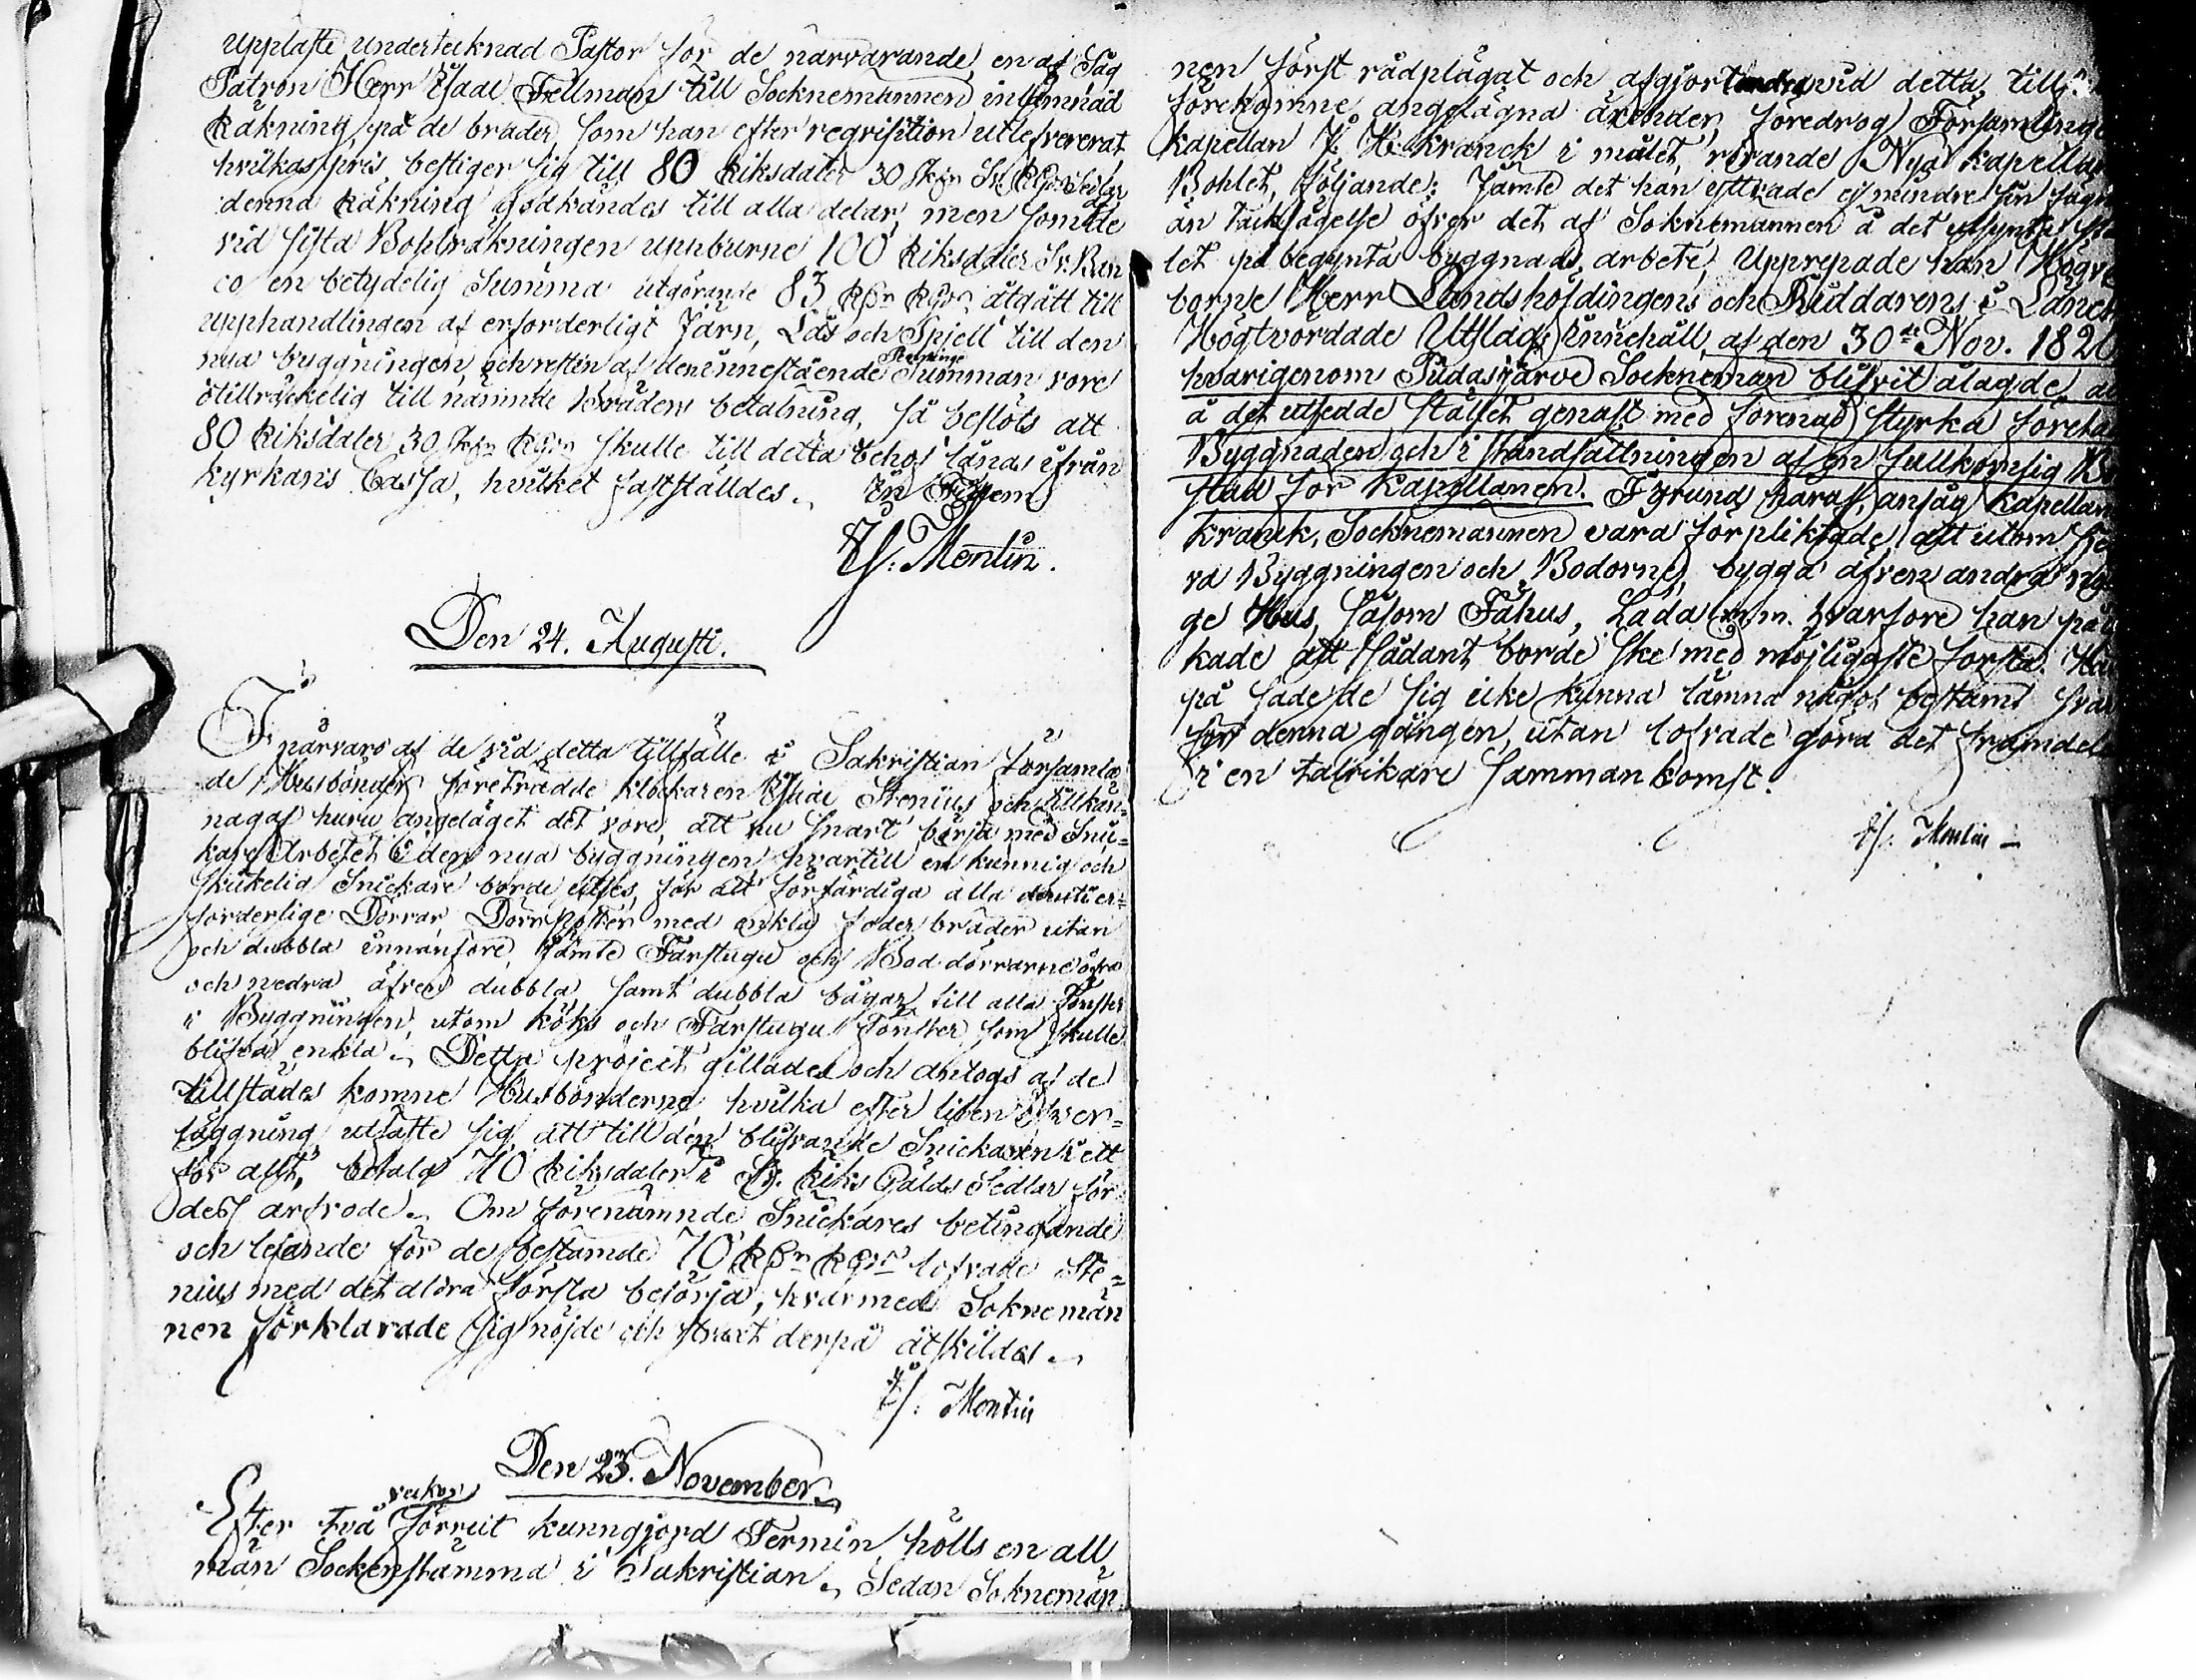 Upplaste undertecknad Pastor för de närvarande, en af Såg
Patron Herr Isaac Fellman till Socknemännen inlämnad
Räkning på de bräder, som han efter reqvisition utlefvererat
hvilkas pris bestiger sig till 80 Riksdaler 30 sk
denna Räkning godkändes till alla delar, men som de
vid sista Bohlräkningen uppburne 100 Riksdaler Sv. Ban
co en betydelig Summa utgörande 83 åtgått till
upphandlingen af erforderligt Järn, Lås och Spjell till den
nya byggningen, och resten af den innestående Penninge Summan vore
otillräckelig till nämnde bräders betalning, så beslöts att
80 Riksdaler 30 sk skulle till detta behof lånas ifrån
kyrkans Cassa, hvilket fastställdes. In Fidem
Montin.
Den 24. Augusti.
I närvaro af de vid detta tillfälle i Sakristian församla
de Husbönder företrädde klockaren Stenius och tillkän=
nagaf huru angeläget det vore, att nu snart börja med Sni=
kare Arbetet i den nya byggningen, hvartill en kunnig och
skickelig Snickare borde utses, för att förfärdiga alla deruti er=
forderlige Dörrar, Dörrposter med enkla foder bräder utan
och dubbla innanföre, jämte Farstugu och Bod dörrarne öfra
och nedra äfven dubbla, samt dubbla bågar till alla Fönster
i Byggningen, utom köks och Farstugu Fönster, som skulle
blifva enkla. Detta project gillades och antogs af de
tillstädes komne Husbönderne, hvilka efter liten öfver=
läggning utsatte sig att till den blifvande Snickaren i ett
för allt, betala 70 Riksdaler i Sv. Riks Gälds Sedlar för
dess arfvode. Om förenämnde Snickares betingande
och lejande för de bestämde 70 lofvade Ste=
nius med det aldra första besörja, hvarmed Sokne män
nen förklarade sig nöjde och straxt derpå åtskildes.
Montin
Den 23. November.
Efter två veckor förrut kunngjord Termin, hölls en all
män Sockenstämma i Sakristian. Sedan Soknemän
nen först rådplägat och afgjort vid detta till
förekomne angelägna ärenden, föredrog Församlings
kapellan J. H. Kranck i målet, rörande Nya kapellans
Bohlet, följande: Jämte det han yttrade ej mindre sin
än tacksägelse öfver det af Soknemännen å det utsynta
let på begynta byggnads arbete, Upprepade han Högvä
borne Herr Landshöfdingens och Riddarens i Länet
Högtvördade Utslags innehåll, af den 30de Nov. 182
hvarigenom Pudasjärvi Socknemän blifvit ålagde, at
å det utsedde stället genast med förenad styrka företa
Byggnaden och i ståndsättningen af en fullkomlig Bo
stad för kapellanen. I grund häraf, ansåg kapellan
Kranck, Socknemännen vara förpliktade, att utom
ra Byggningen och Bodorne, bygga äfven andra
ge Hus, såsom Fähus, Lada m.m. hvarföre han
kade att sådant borde ske med möjligaste första.
på sade de sig icke kunna lämna något bestämt svar
för denna gången, utan lofvade göra det framdeles
i en talrikare sammankomst.
Montin